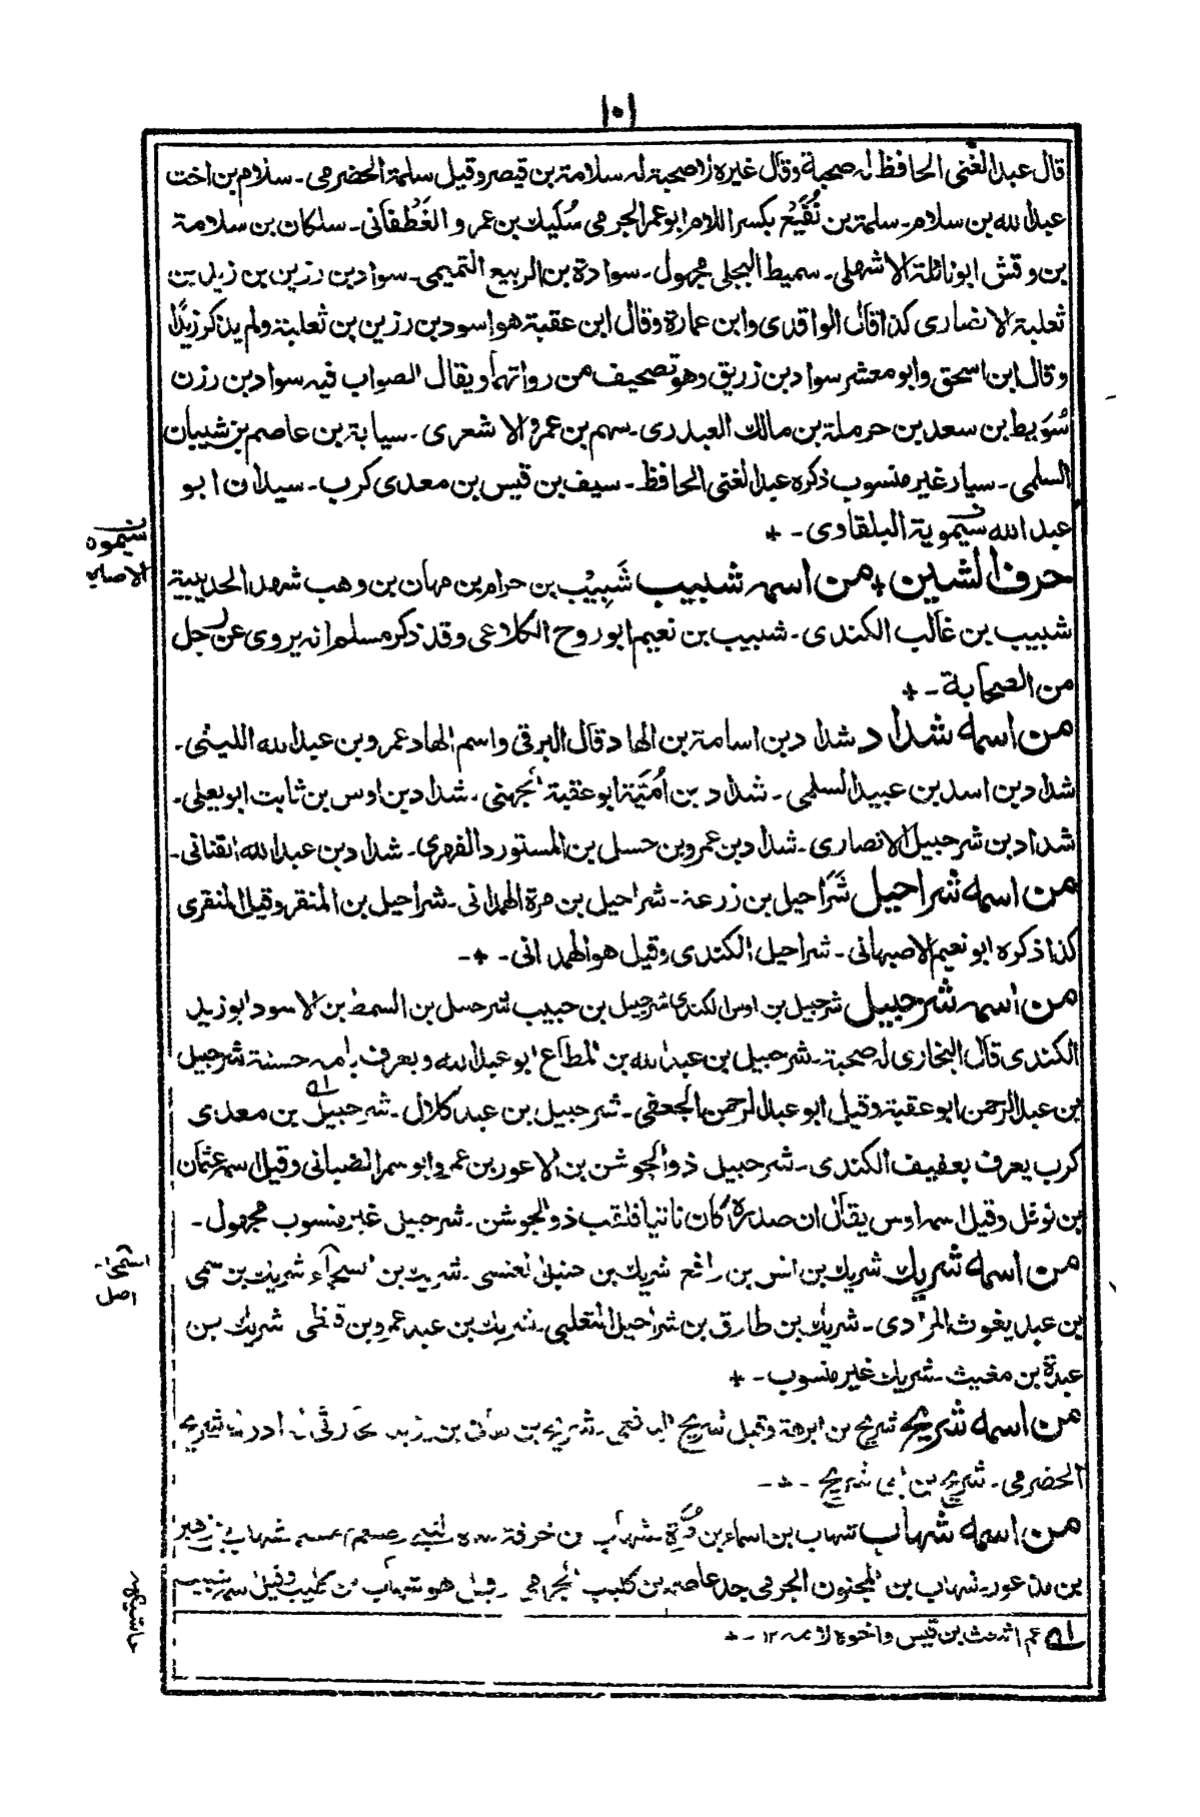 ١٠١
قال عبد الغني الحافظ له صحبة وقال غيره لا صحبة له سلامة بن قيصر وقيل سلمة الحضرمي ـ سلام بن اخت
عبد الله بن سلام ـ سلمة بن نُفَيْع بكسر اللام ابو عمر الجرمي سُلَيك بن عمرو الغَطْفاني ـ سلكان بن سلامة
بن وقش ابو نائلة الاشهلي ـ سميط البجلي مجهول ـ سوادة بن الربيع التميمي ـ سواد بن رزين بن زيد بن
ثعلبة الانصاري كذا قال الواقدي وابن عمارة وقال ابن عقبة هو اسود بن رزين بن ثعلبة ولم يذكر زيدًا
وقال ابن اسحق وابو معشر سواد بن زريق وهو تصحيف من رواتهما ويقال الصواب فيه سواد بن رزن
سُوَيبط بن سعد بن حرملة بن مالك العبدري ـ سهم بن عمرو الاشعري ـ سيابة بن عاصم بن شيبان
السلمي ـ سيار غير منسوب ذكره عبد الغني الحافظ ـ سيف بن قيس بن معدي كرب ـ سيدان ابو
عبد الله سيمويه البلقاوي ـ
حرف الشين من اسمه شبيب شَبِيْب بن حرام بن مهان بن وهب شهد الحديبية
شبيب بن غالب الكندي ـ شبيب بن نعيم ابو روح الكلاعي وقد ذكر مسلم انه يروى عن رجل
من الصحابة ـ
من اسمه شداد شداد بن اسامة بن الهاد قال البرقي واسم الهاد عمرو بن عبد الله الليثي ـ
شداد بن اسد بن عبيد السلمي ـ شداد بن اُمَيّة ابو عقبة الجهني ـ شداد بن اوس بن ثابت ابو يعلى ـ
شداد بن شرحبيل الانصاري ـ شداد بن عمرو بن حسل بن المستورد الفهري ـ شداد بن عبد الله القناني ـ
من اسمه شراحيل شَرَاحيل بن زرعة ـ شراحيل بن مرة الهمداني ـ شراحيل بن المنقر وقيل المنقري
كذا ذكره ابو نعيم الاصبهاني ـ شراحيل الكندي وقيل هو الهمداني ـ
من اسمه شرحبيل شرحبيل بن اوس الكندي شرحبيل بن حبيب شرحبيل بن السمط بن الاسود ابو زيد
الكندي قال البخاري له صحبة ـ شرحبيل بن عبد الله بن المطاع ابو عبد الله ويعرف بامه حسنة شرحبيل
بن عبد الرحمن ابو عقبة وقيل ابو عبد الرحمن الجعفي ـ شرحبيل بن عبد كلال ـ شرحبيل بن معدي
كرب يعرف بعفيف الكندي ـ شرحبيل ذو الجوشن بن الاعور بن عمرو ابو سمر الضبابي وقيل اسمه عثمان
بن نوفل وقيل اسمه اوس يقال ان صدره كان ناتيا فلقب ذو الجوشن ـ شرحبيل غير منسوب مجهول ـ
من اسمه شريك شريك بن انس بن رافع شريك بن حنبل العبسي ـ شريك بن السحماء شريك بن سمي
بن عبد يغوث المرادي ـ شريك بن طارق بن شراحيل الثعلبي ـ شريك بن عبد عمرو بن قـظي شريك بن
عبدة بن مغيث ـ شريك غير منسوب ـ
من اسمه شريح شريح بن ابرهة وقيل شريح اليافعي ـ شريح بن هانئ بن يزيد شريح
الحضرمي ـ شريح بن ابي شريح ـ
من اسمه شهاب شهاب بن اسماء بن مُرّة شهاب بن خرفة شهاب بن زهير
بن مذعور ـ شهاب بن المجنون الجرمي جد عاصم بن كليب الجرمي ـ وقيل هو شهاب بن كليب وقيل اسمه شبيب
عم اشعث بن قيس واخوه لامه ١٢ ـ
سيموه
الاصابه
اصل
حاشية